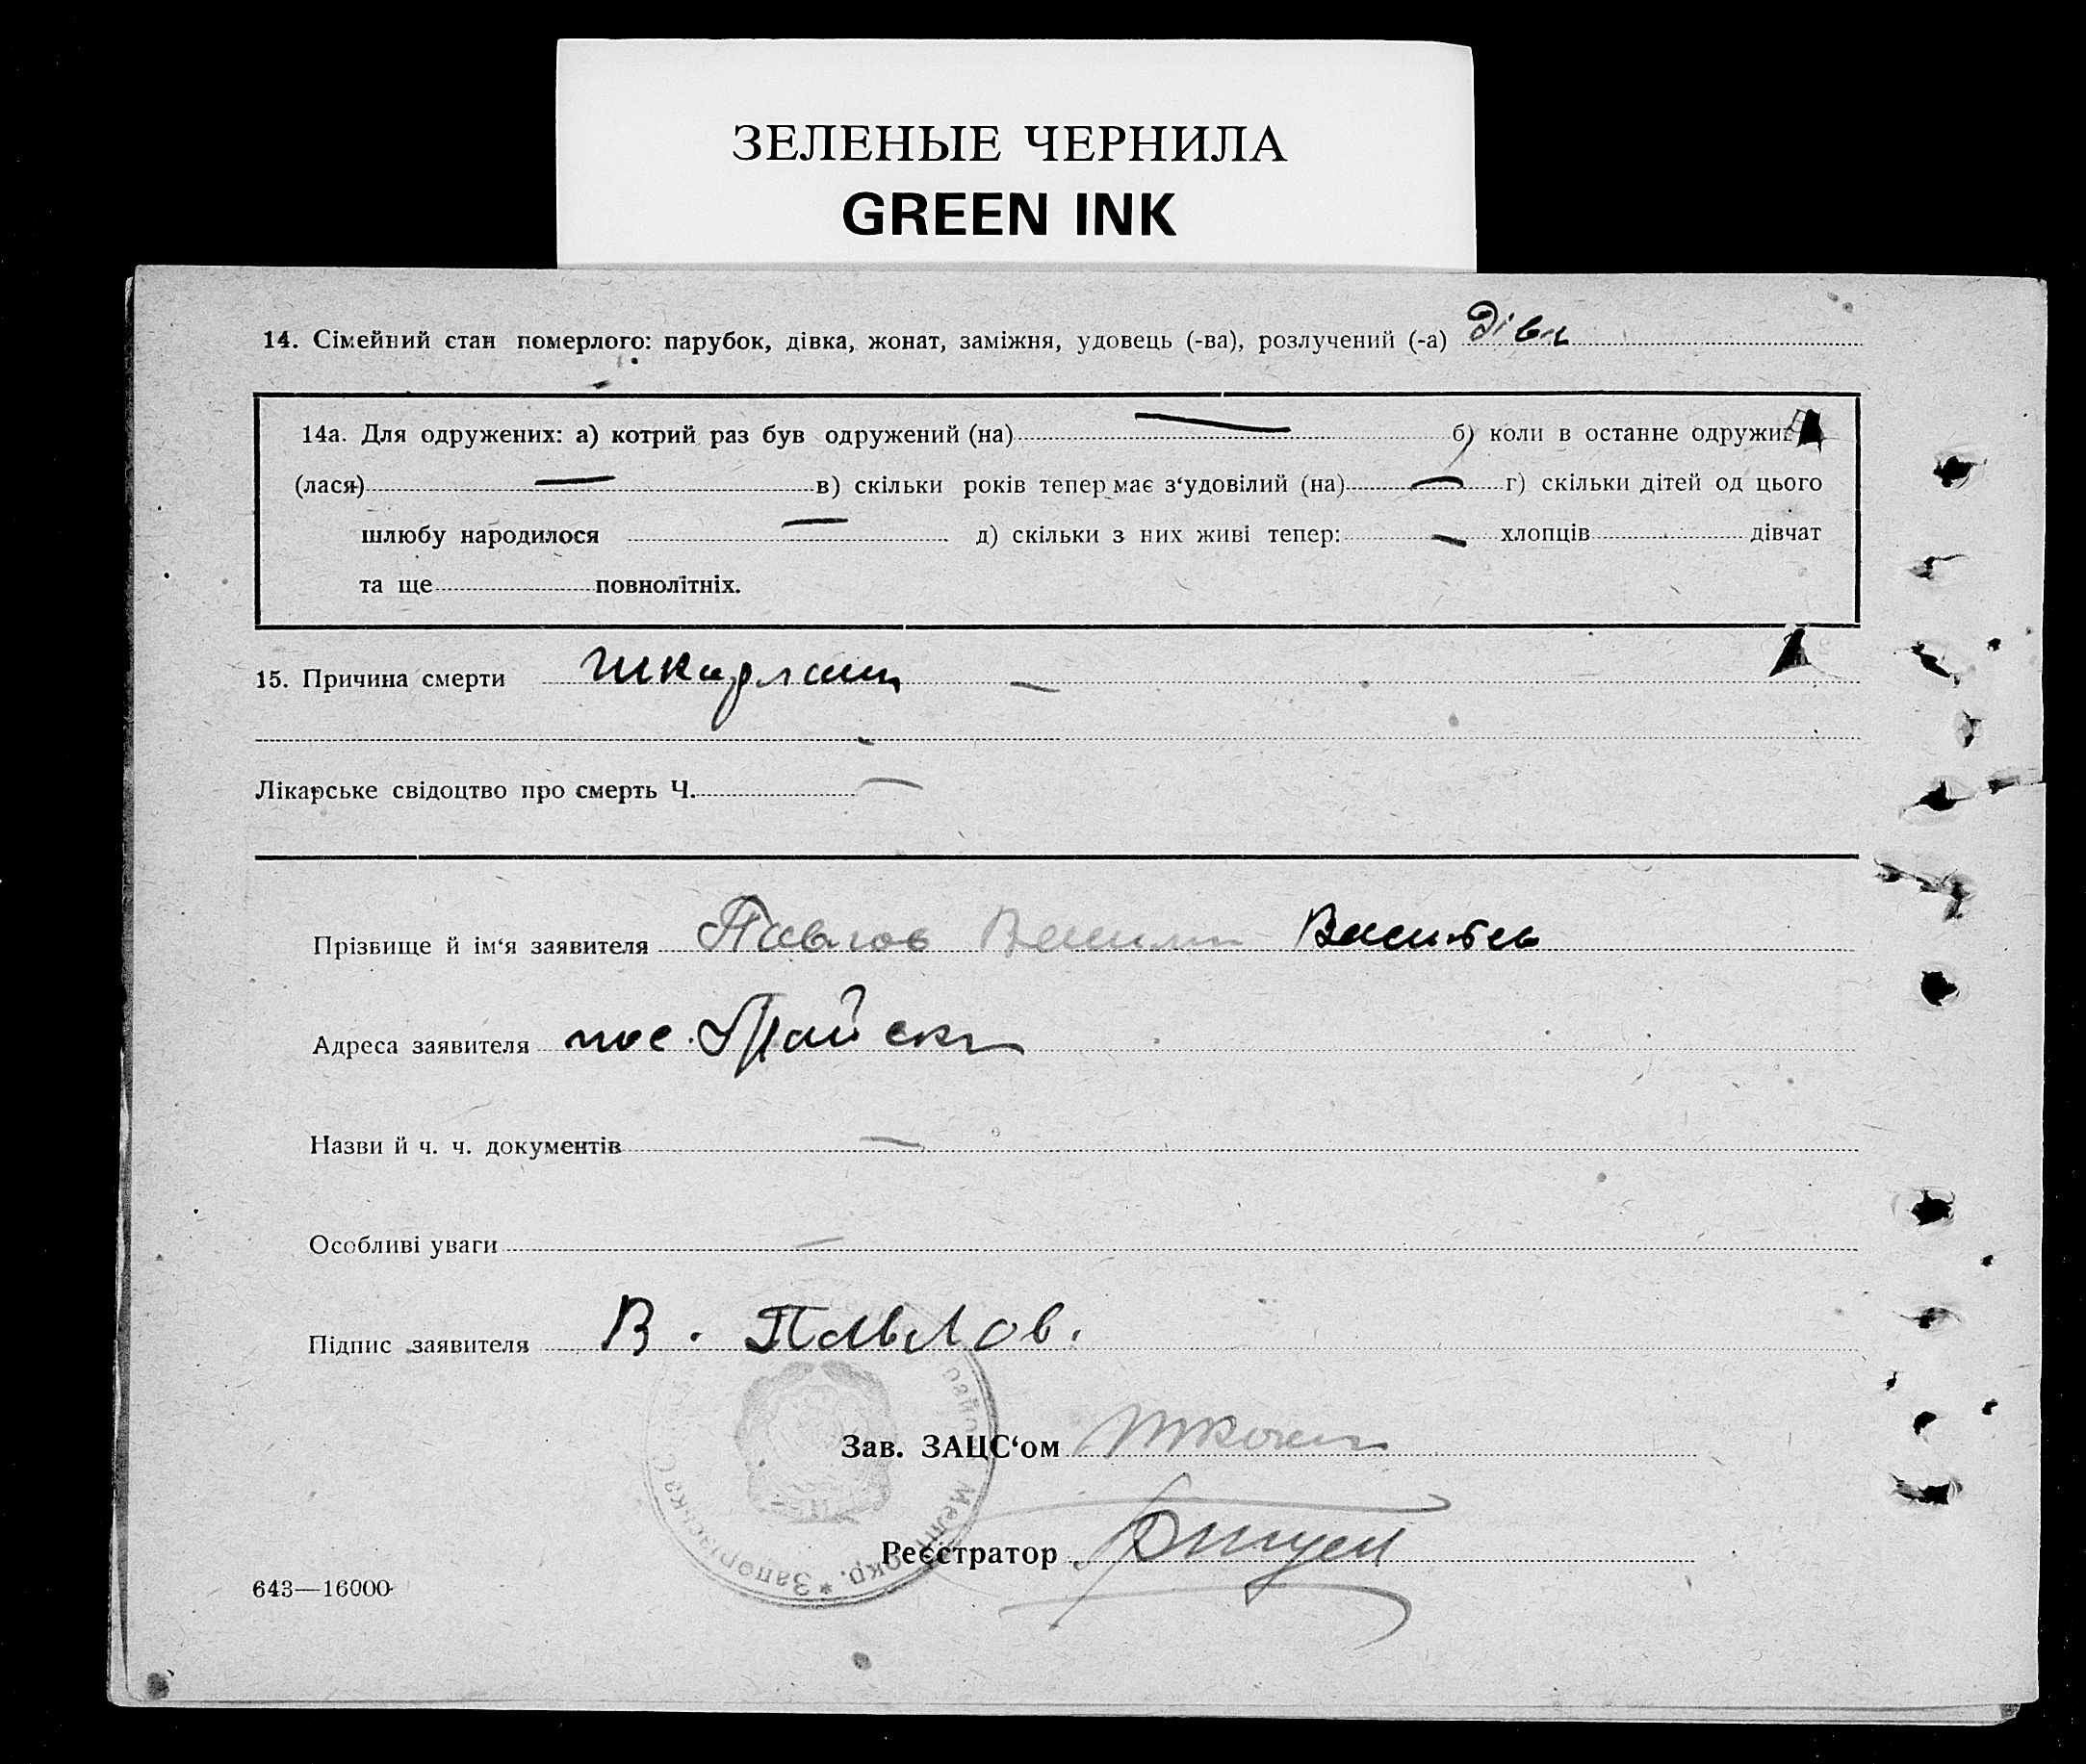 ЗЕЛЕНЫЕ ЧЕРНИЛА
GREEN INK
14. Сімейний стан померлого: парубок, дівка, жонат, заміжня, удовець (-ва), розлучений (-а)
14а. Для одружених: а) котрий раз був одружений (на) б) коли в останнє одружи
(лася) в) скільки років тепер має з‘удовілий (на) г) скільки дітей од цього
шлюбу народилося д) скільки з них живі тепер: хлопців дівчат
та ще повнолітніх.
15. Причина смерти
Лікарське свідоцтво про смерть Ч.
Прізвище й ім‘я заявителя Павлов
Адреса заявителя пос.
Назви й ч. ч. документів
Особливі уваги
Підпис заявителя В. Павлов.
Зав. ЗАЦС‘ом
Реєстратор
643—16000